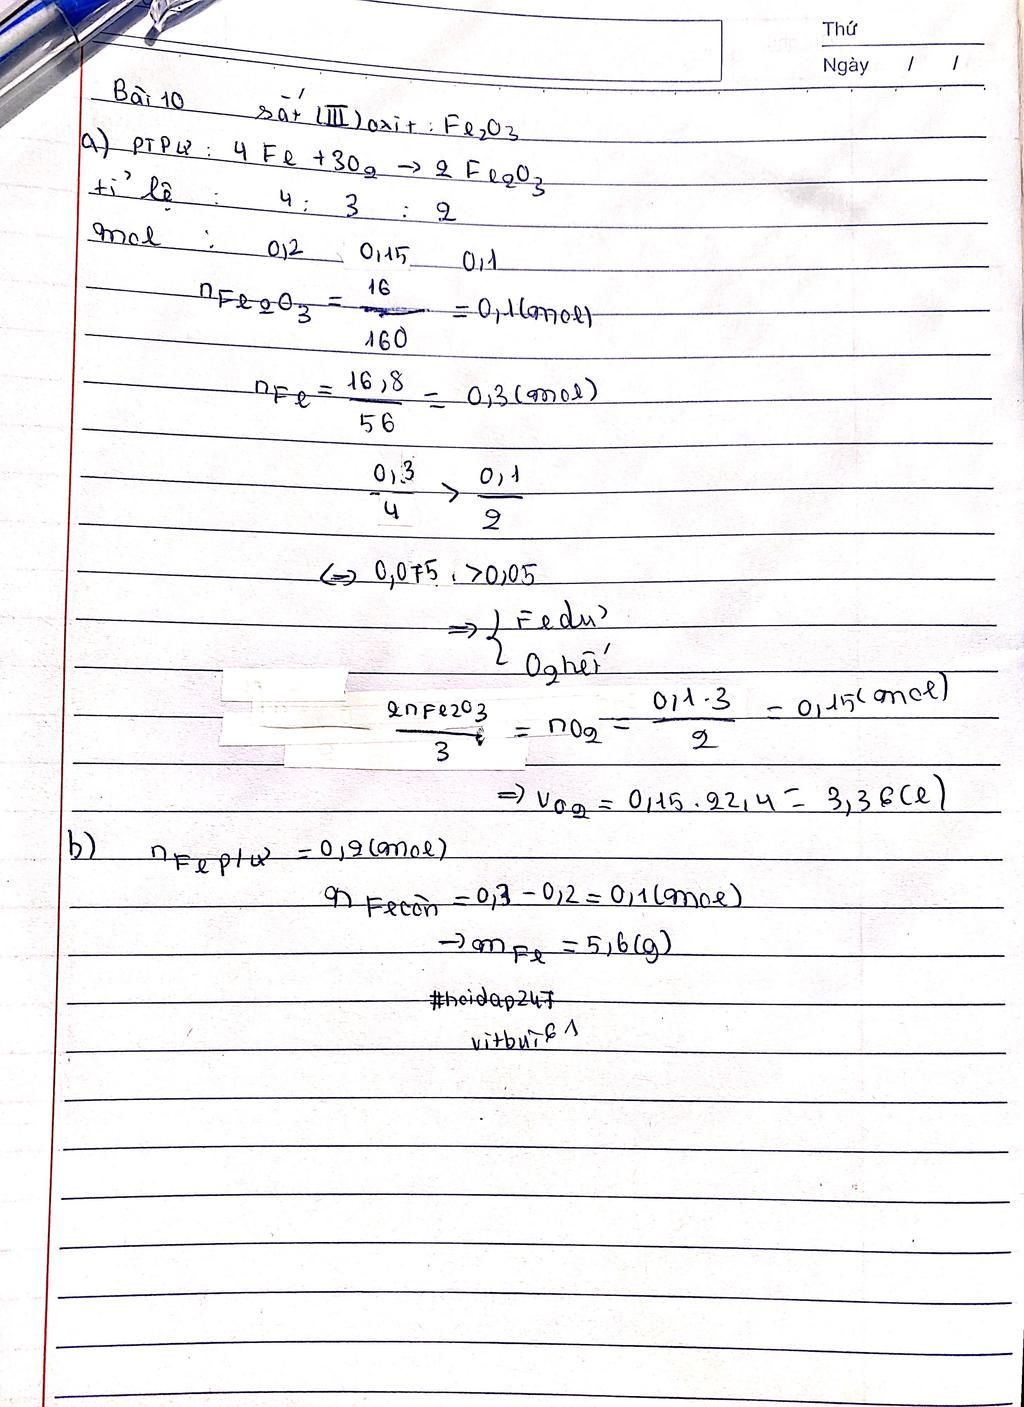 Thứ
Ngày / /
Bài 10 sắt (III) oxit : Fe₂O₃
a) PTPƯ : 4 Fe + 3O₂ → 2 Fe₂O₃
tỉ lệ : 4 : 3 : 2
mol : 0,2 0,15 0,1
nFe₂O₃ = 16/160 = 0,1(mol)
nFe = 16,8/56 = 0,3(mol)
0,3/4 > 0,1/2
<=> 0,075 > 0,05
=> { Fe dư
O₂ hết
2nFe2O3/3 = nO₂ = 0,1.3/2 = 0,15(mol)
=> VO₂ = 0,15.22,4 = 3,36(l)
b) nFe p/ư = 0,2(mol)
nFe còn = 0,3 - 0,2 = 0,1(mol)
→ mFe = 5,6(g)
#hoidap247
vitbui61